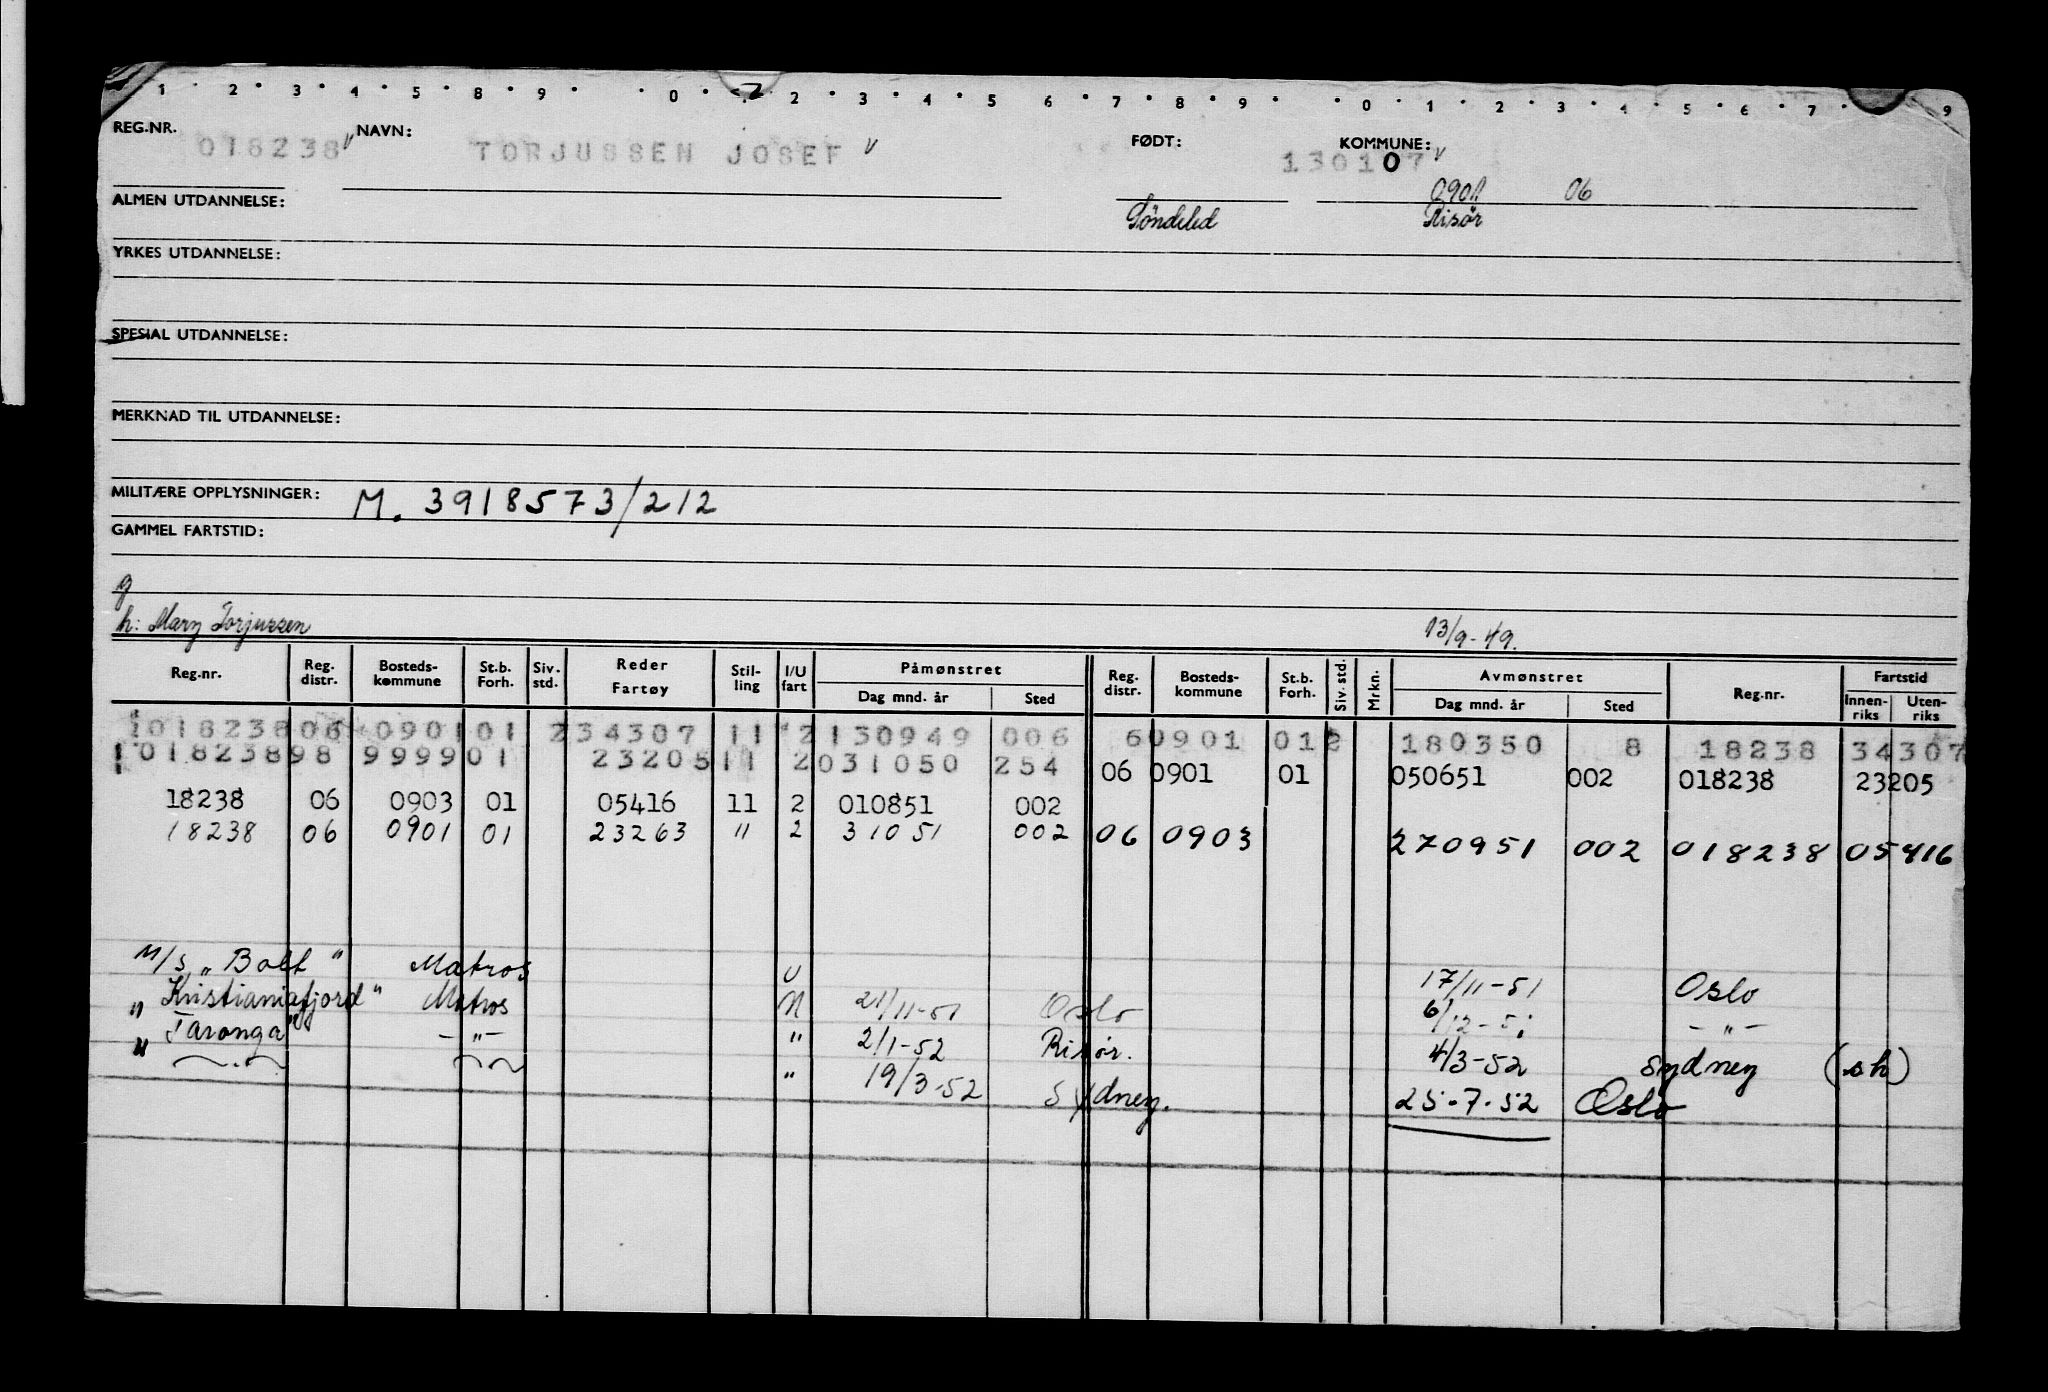 1 · 2 · 3 · 4 · 5 · 8 · 9 · 0 · 2 · 3 · 4 · 5 6 · 7 · 8 · 9 · · 0 · 1 · 2 · 3 · 4 · 5 · 6 · 7 · 9
REG.NR. 018238 v NAVN: TORJUSSEN JOSEF v FØDT: 130107 v KOMMUNE:
0901 06
ALMEN UTDANNELSE: Söndeled Risör
YRKES UTDANNELSE:
SPESIAL UTDANNELSE:
MERKNAD TIL UTDANNELSE:
MILITÆRE OPPLYSNINGER: M. 3918573/212
GAMMEL FARTSTID:
g
h: Mary Torjussen 13/9-49.
Reg.nr. Reg. distr. Bosteds-kommune St.b. Forh. Siv. std. Reder Fartøy Stil-ling I/U fart Påmønstret Dag mnd. år Sted Reg. distr. Bosteds-kommune St.b. Forh. Siv. std. Mrkn. Avmønstret Dag mnd. år Sted Reg.nr. Fartstid Innen-riks Uten-riks
101823806 090101 234307 11 2130949 006 60901 012 180350 8 18238 34307
101823898 999901 2320511 2031050 254 06 0901 01 050651 002 018238 23205
18238 06 0903 01 05416 11 2 010851 002
18238 06 0901 01 23263 " 2 31051 002 06 0903 270951 002 018238 05416
M/s "Bolt" Matros U 17/11-51 Oslo
" Kristianiafjord" Matros N 21/11-51 Oslo 6/12-51 -"-
" Taronga" -"- " 2/1-52 Risör. 4/3-52 Sydney (sh)
" 19/3-52 Sydney. 25-7-52 Oslo